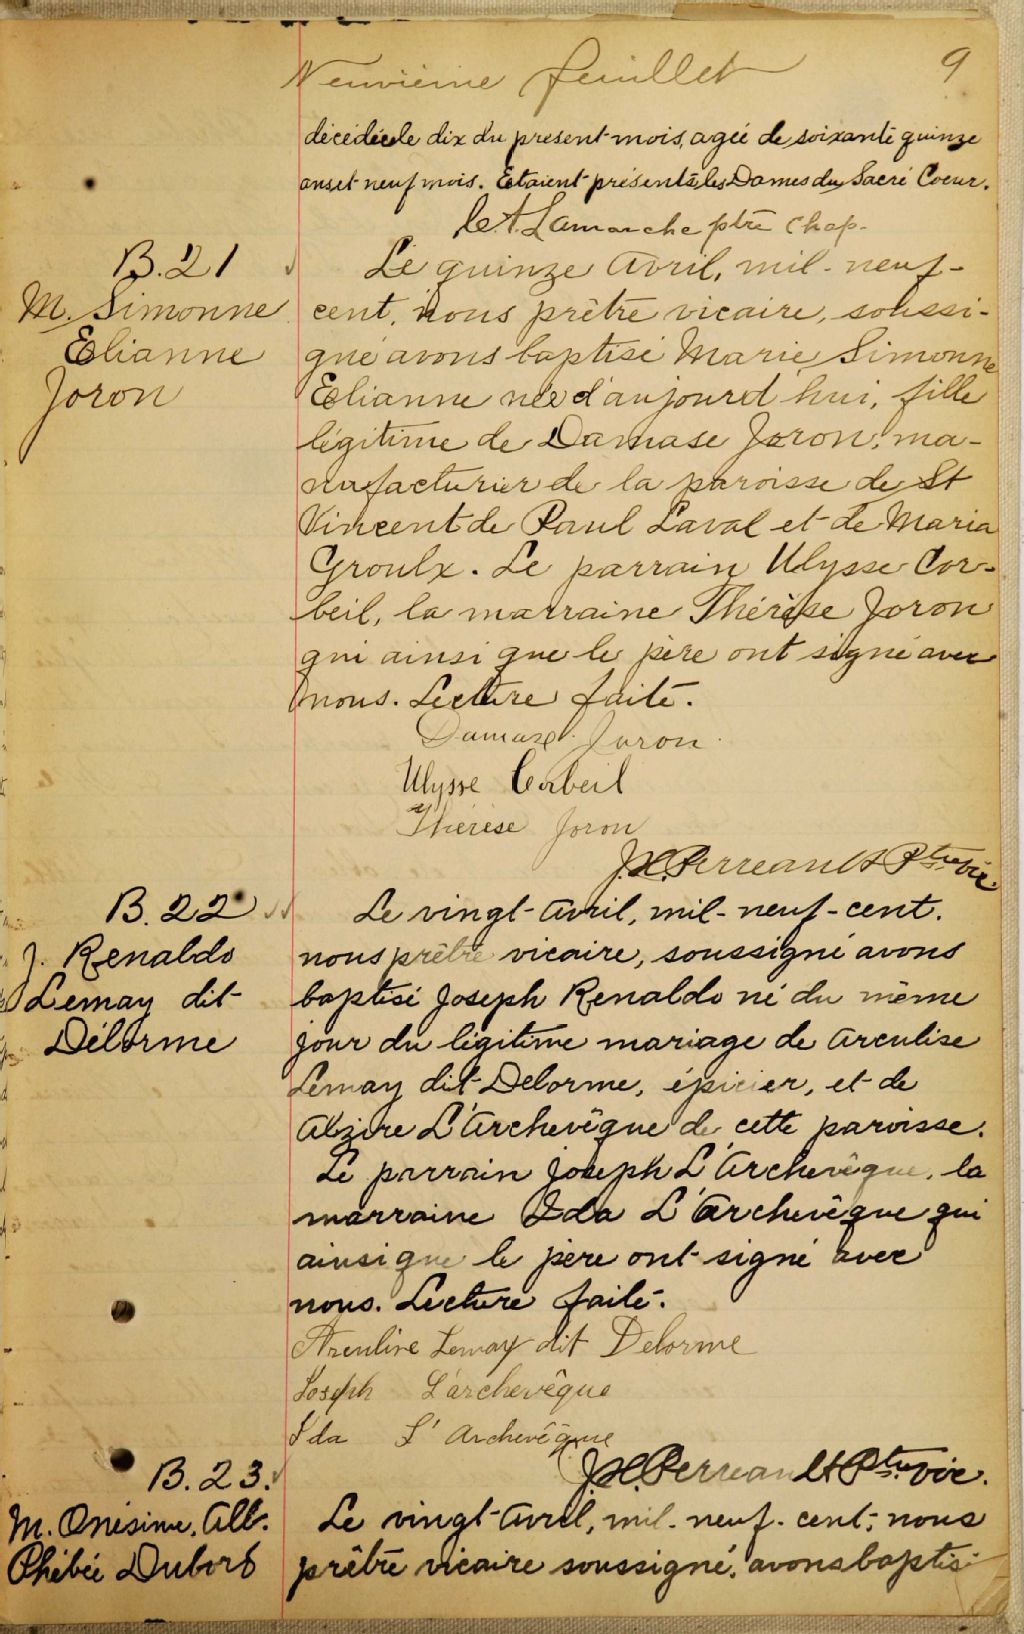 Neuvième feuillet 9
décédée le dix du present mois, agée de soixante quinze
ans et neuf mois. Etaient présents les Dames du Sacré Coeur.
Lamarche ptre chap.
B. 21
M. Simonne
Elianne
Joron
Le quinze Avril, mil-neuf-
cent, nous prêtre vicaire, soussi-
gné avons baptisé Marie Simonne
Elianne née d'aujourd'hui, fille
légitime de Damase Joron, ma-
nufacturier de la paroisse de St
Vincent de Paul Laval et de Maria
Groulx. Le parrain Ulysse Cor-
beil, la marraine Thérèse Joron
qui ainsi que le père ont signé avec
nous. Lecture faite.
Damase Joron
Ulysse Corbeil
Thérèse Joron
J.H. Perreault Ptre vic
B. 22
J. Renaldo
Lemay dit
Délorme
Le vingt Avril, mil-neuf-cent.
nous prêtre vicaire, soussigné avons
baptisé Joseph Renaldo né du même
jour du légitime mariage de Arculise
Lemay dit Delorme, épicier, et de
Alzire L'Archevêque de cette paroisse.
Le parrain Joseph L'Archevêque, la
marraine Ida L'Archevêque qui
ainsi que le père ont signé avec
nous. Lecture faite.
Lemay dit Delorme
Joseph Larchevêque
Ida L'Archevêque
J.H. Perreault Ptre vic.
B. 23.
M. Onésime. Alb.
Phébée Dubord
Le vingt Avril, mil-neuf-cent, nous
prêtre vicaire soussigné, avons baptisé